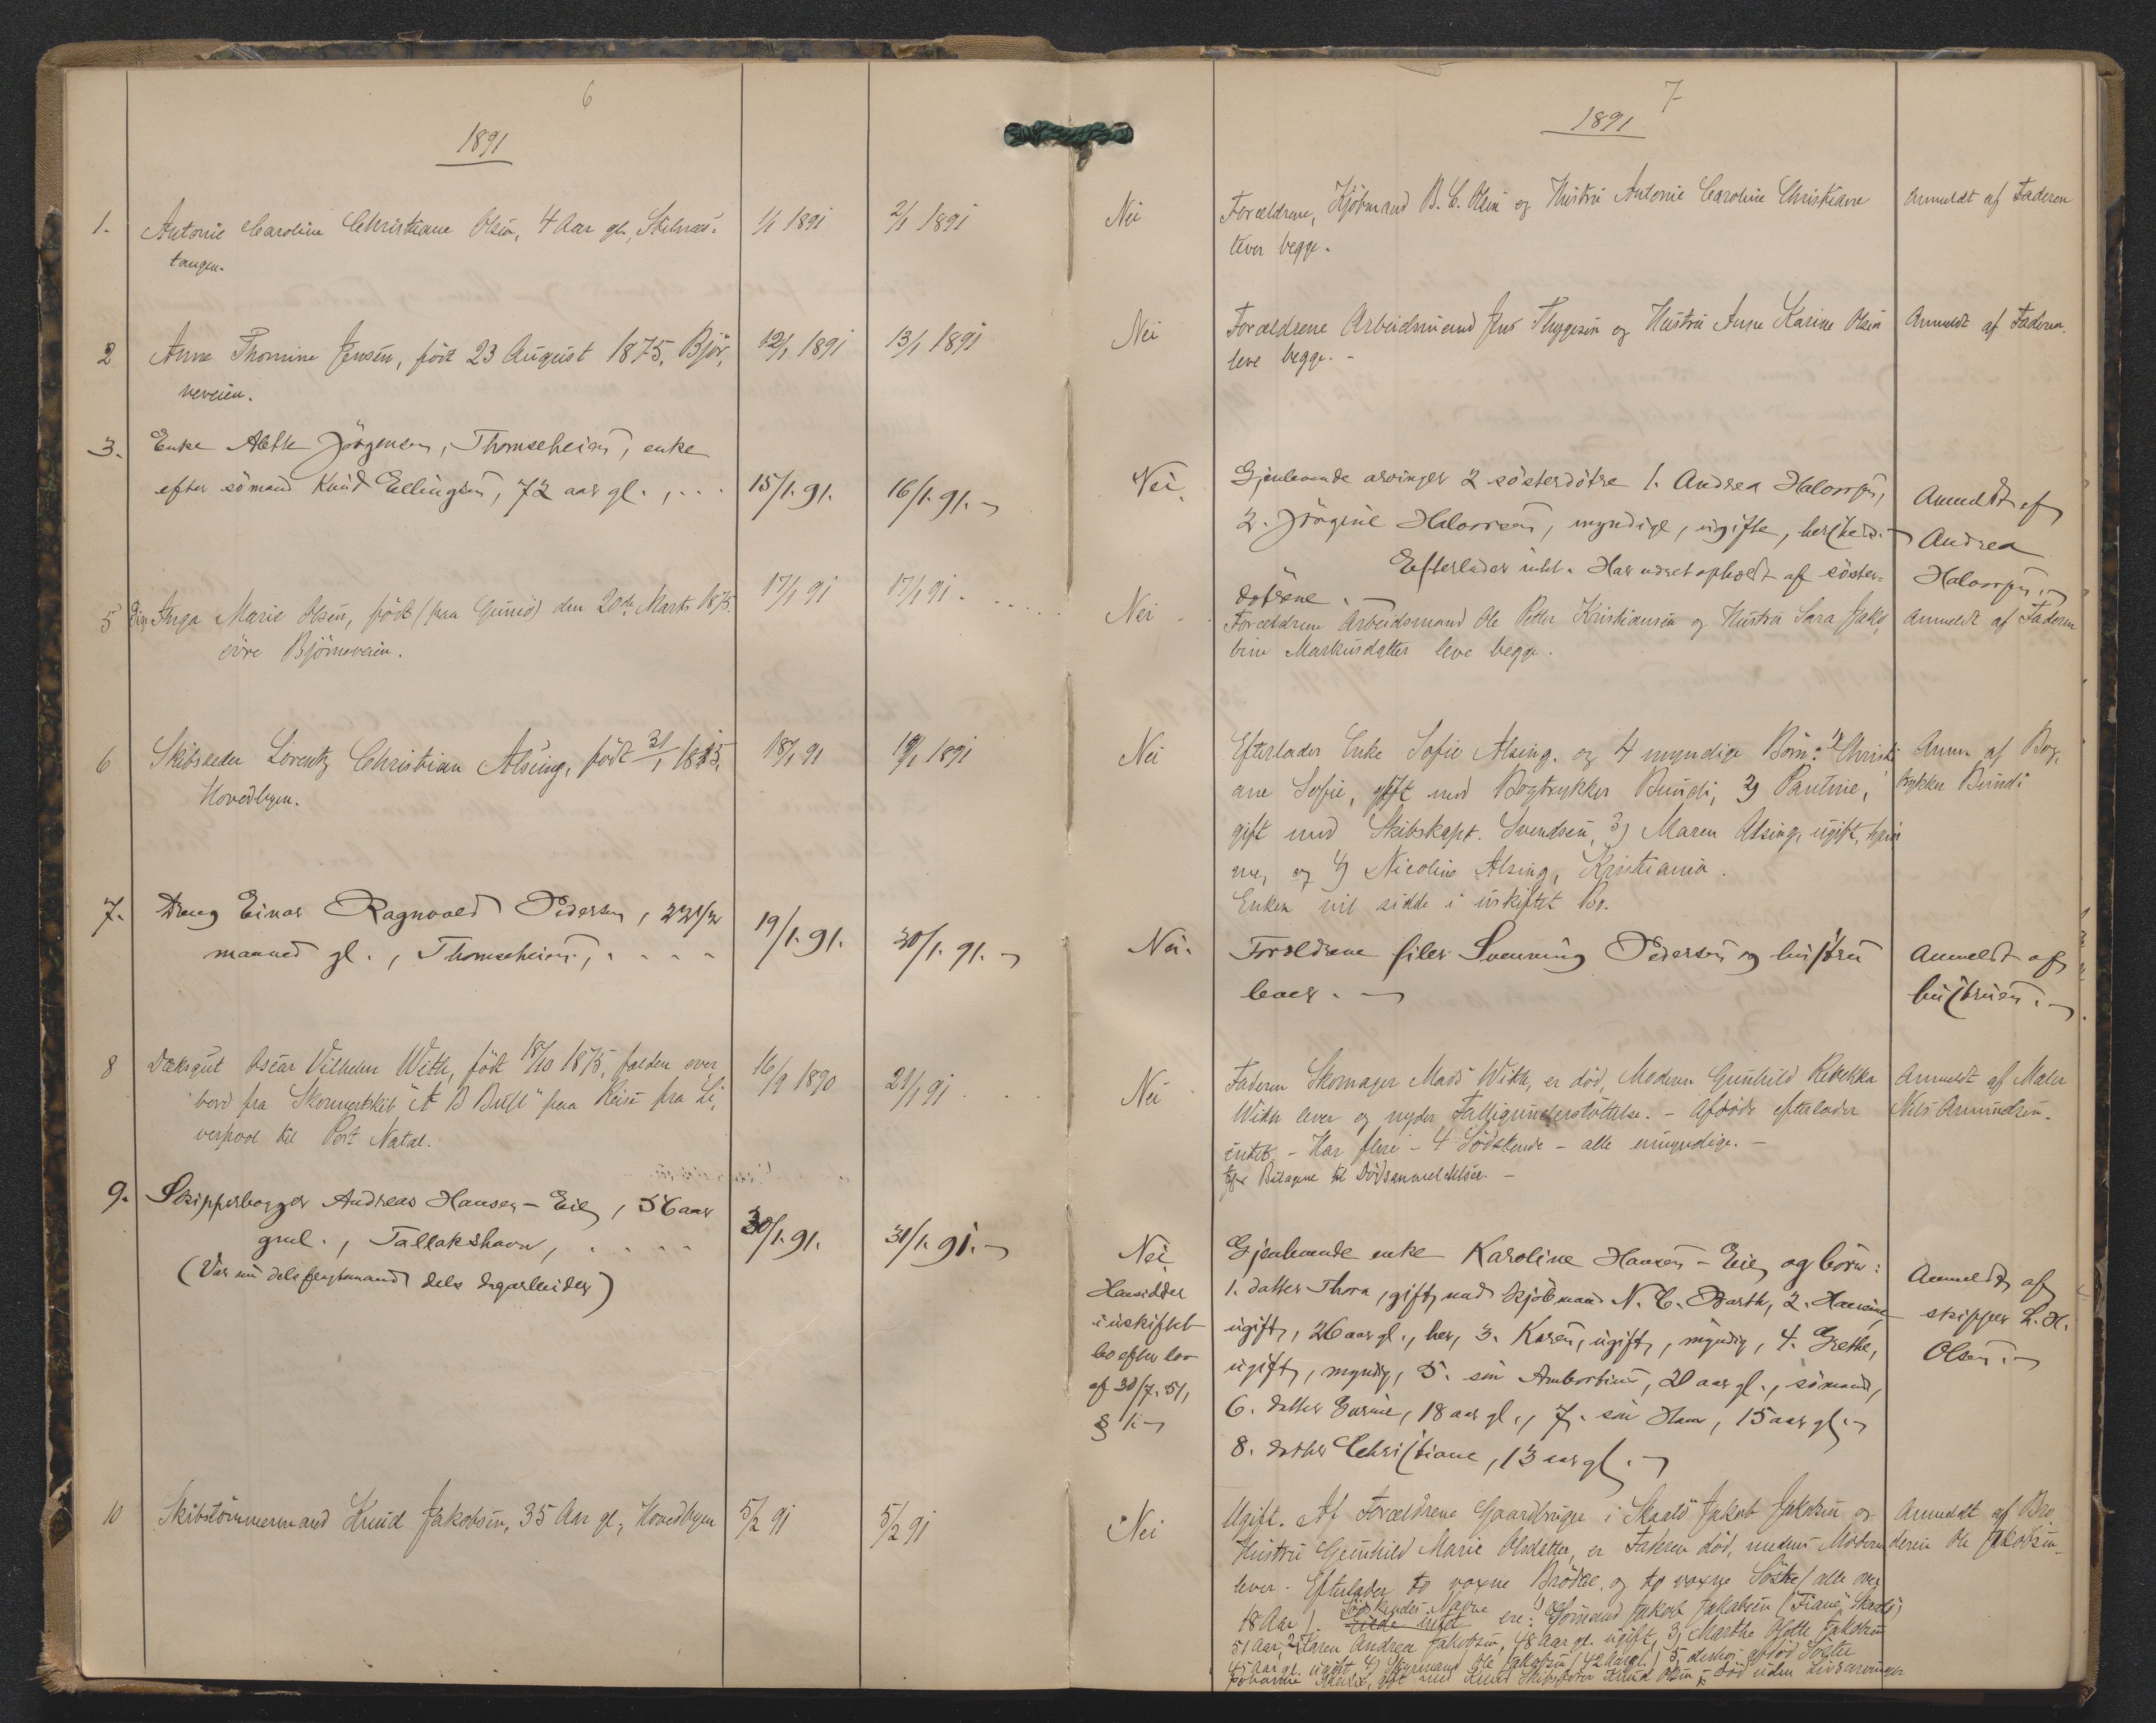 6
1891
1. Antonie Caroline Christiane Olsen, 4 Aar gl., Stilnæs-
tangen.
1/1 1891
2/1 1891
2 Anne Thomine Jensen, født 23 August 1875, Bjør-
neveien.
12/1 1891
13/1 1891
3. Enke Alethe Jørgensen, Thomseheien, enke
efter sømand Knud Ellingsen, 72 aar gl.,
15/1. 91.
16/1. 91.
5 Pige Inga Marie Olsen, født (paa Gumø) den 20de Marts 1875.
øvre Bjørneveien.
17/1 91
17/1 91.
6 Skibsreder Lorentz Christian Alsing, født 31/1 1815,
Hovedbyen.
18/1 91
19/1 1891
7. Dreng Einar Ragnvald Pedersen, 2 21/2
maaned gl., Thomseheien,
19/1. 91.
30/1. 91.
8 Dæksgut Oscar Vilhelm With, født 18/10 1875, falden over
bord fra Skonnertskib "A B Bull" paa Reise fra Li-
verpool til Port Natal.
16/9 1890
21/1 91
9. Skipperborger Andreas Hansen-Eie, 56 aar
gml., Tallakshavn,
(Var nu dels fragtemand dels dagarbeider)
30/1. 91.
31/1. 91.
10 Skibstømmermand Knud Jakobsen, 35 Aar gl., Hovedbyen
5/2 91
5/2 91
7
1891
Nei
Forældrene, Kjøbmand B. C. Olsen og Hustru Antonie Caroline Christiane
lever begge.
Anmeldt af Faderen
Nei
Forældrene Arbeidsmand Jens Thygesen og Hustru Anne Karine Olsen
leve begge. -
Anmeldt af Faderen.
Nei.
Gjenlevende arvinger 2 søsterdøtre 1. Andrea Halvorsen,
2. Jørgine Halvorsen, myndige, ugifte, her(heds.
Efterlader intet. Har nydt ophold af søster-
døtrene.
Anmeldt af
Andrea
Halvorsen.
Nei
Forældrene Arbeidsmand Ole Petter Kristiansen og Hustru Sara Jako-
bine Markusdatter leve begge.
Anmeldt af Faderen
Nei
Efterlader Enke Sofie Alsing. og 4 myndige Børn: 1) Christi-
ane Sofie, gift med Bogtrykker Bundi, 2) Pauline,
gift med Skibskapt. Svendsen, 3) Maren Alsing, ugift, hjem-
me, og 4) Nicoline Alsing, Kristiania.
Enken vil sidde i uskiftet Bo.
Anm. af Bog-
trykker Bundi
Nei.
Forældrene filer Svenning Pedersen og hustru
lever.
Anmeldt af
hustruen.
Nei
Faderen Skomager Mads With, er død, Moderen Gunhild Rebekka
With lever og nyder Fattigunderstøttelse. - Afdøde efterlader
intet. - Har flere - 4 Sødskende - alle umyndige. -
Bilagene til Dødsanmeldelsen. -
Anmeldt af Maler
Nils Amundsen.
Nei
Hensidder
i uskiftet
bo efter lov
af 30/7. 51,
§ 1.
Gjenlevende enke Karoline Hansen-Eie og børn:
1. datter Thora, gift med kjøbmand N. C. Barth, 2. Hansine
ugift, 26 aar gl., her, 3. Karen, ugift, myndig, 4. Grethe,
ugift, myndig, 5. søn Ambortius, 20 aar gl., sømand,
6. datter Gurine, 18 aar gl., 7. søn Hans, 15 aar gl.
8. datter Christiane, 13 aar gl.
Anmeldt af
skipper L. H.
Olsen.
Nei
Ugift. Af Forældrene Gaardbruger i Skaatø Jakob Jakobsen og
Hustru Gunhild Marie Olsdatter, er Faderen død, medens Moderen
lever. Efterlader to voxne Brødre og to voxne Søstre (alle over
18 Aar). Sødskendes Navne ere: 1) Sømand Jakob Jakobsen (Fiane Skaatø)
51 Aar, 2) Karen Andrea Jakobsen, 48 Aar gl. ugift, 3) Marthe Alette Jakobsen
45 Aar gl. ugift 4) Styrmand Ole Jakobsen (42 Aar gl.) 5) desuden afdød Søster
Johanne gift med Knud Olsen - død uden Livsarvinger
Anmeldt af Bro-
deren Ole Jakobsen